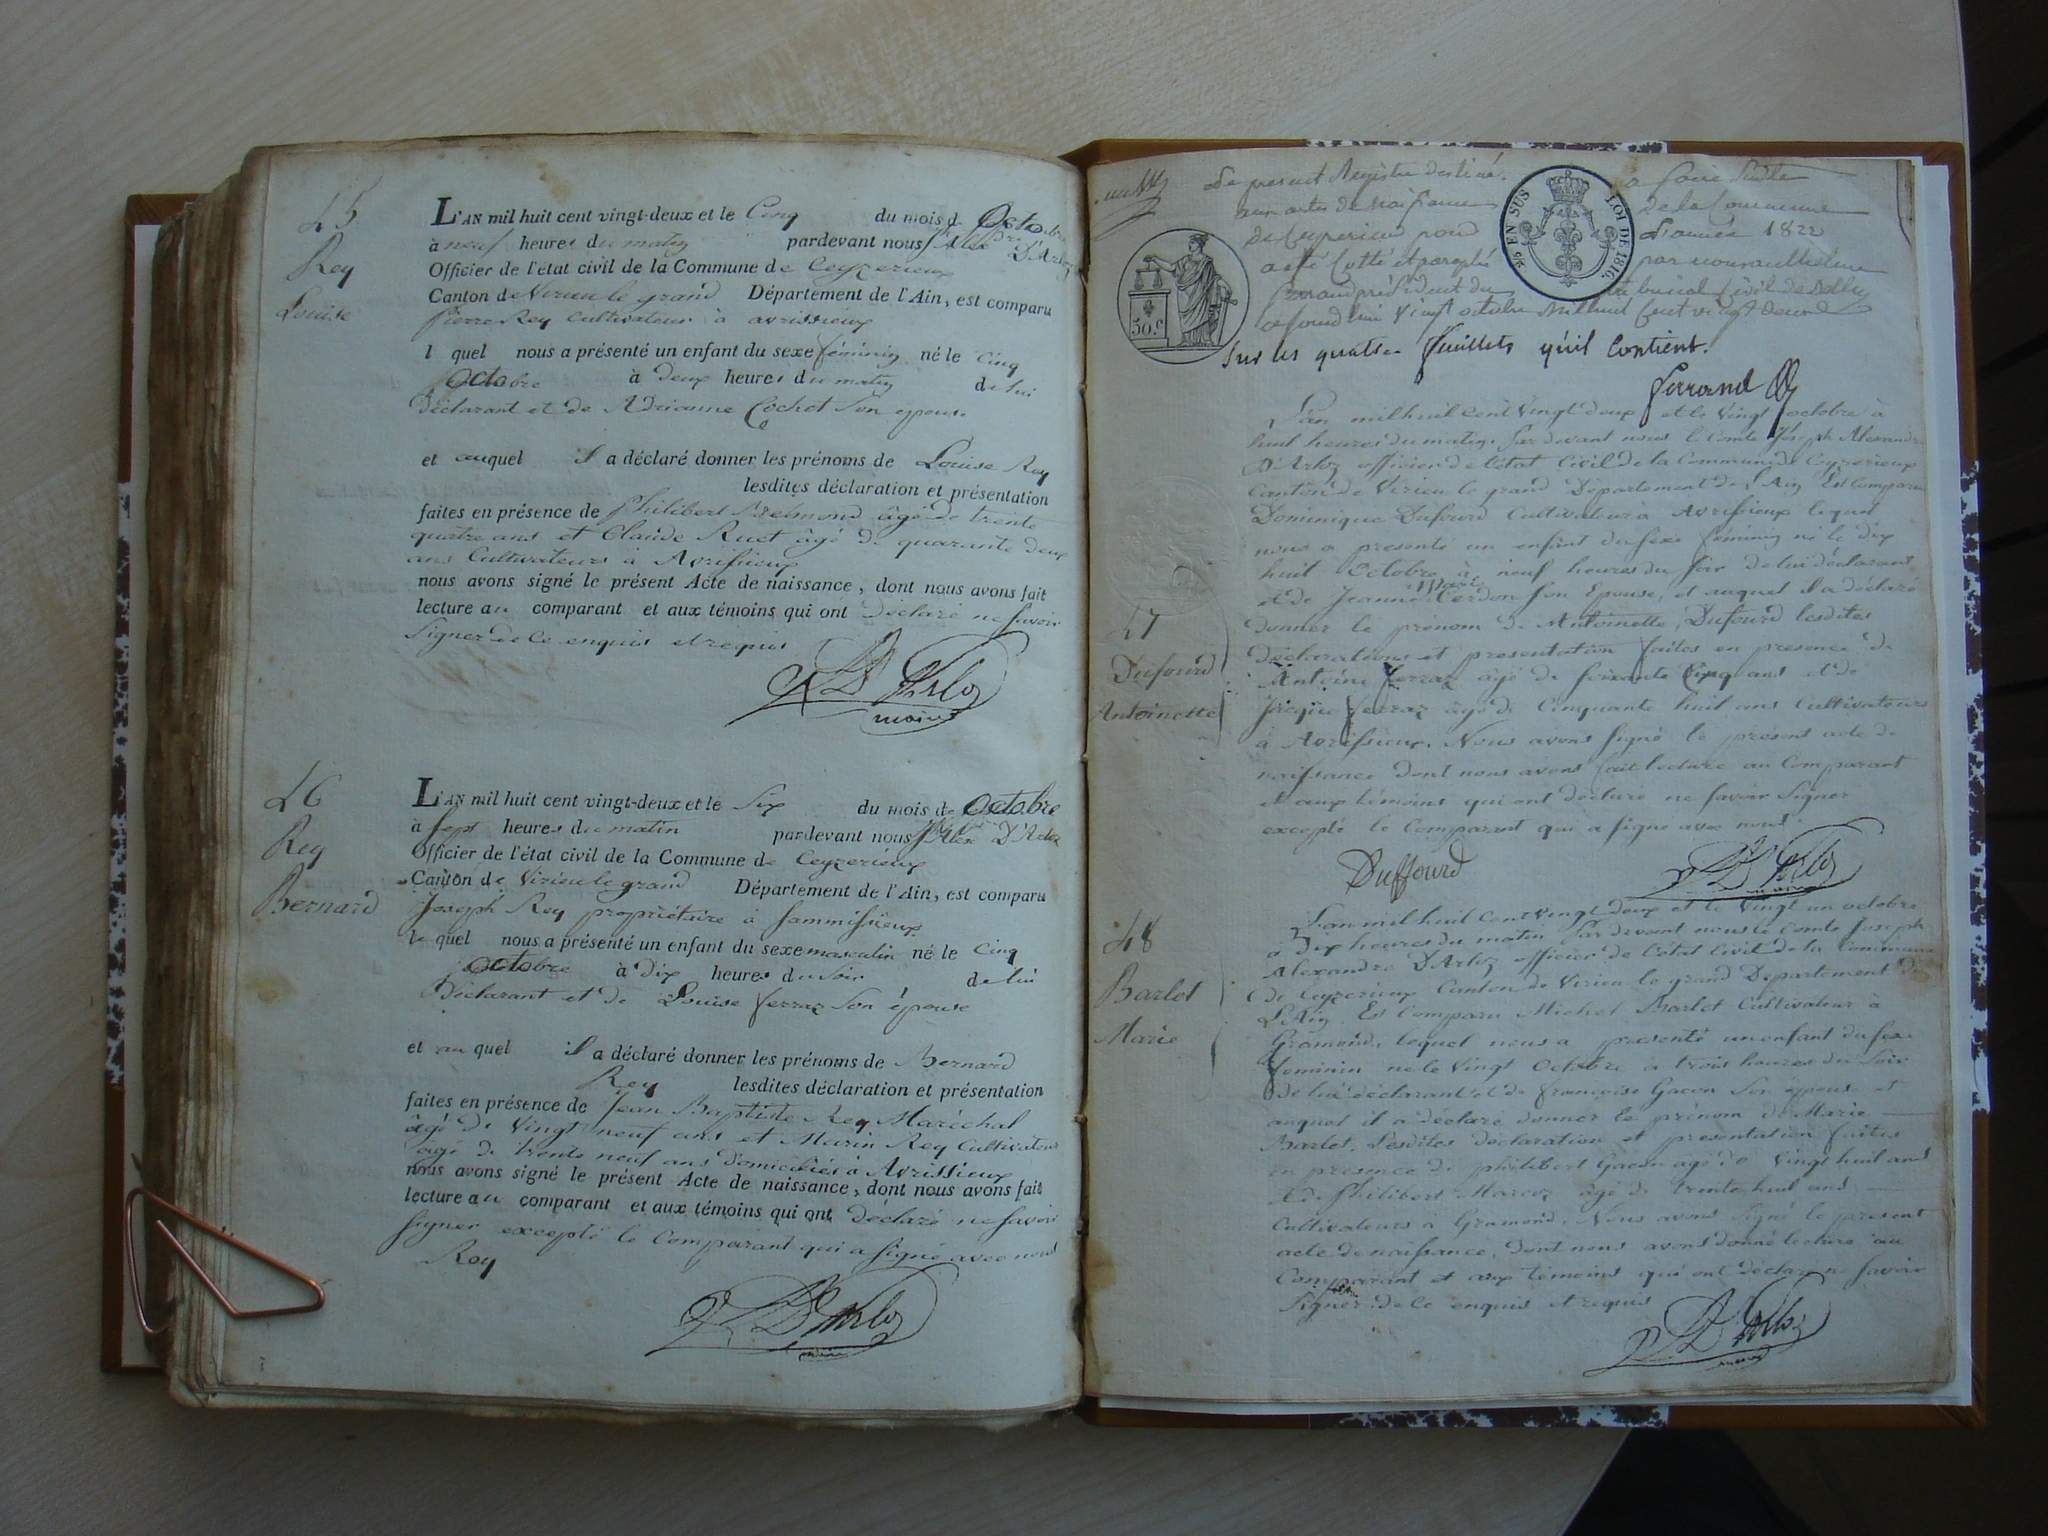 45
Rey
Louise
L'AN mil huit cent vingt-deux et le Cinq du mois de Octobre
à neuf heures du matin pardevant nous Jh Alexdre D'Arloz
Officier de l'état civil de la Commune de Ceyzerieux
Canton de Virieu le grand Département de l'Ain, est comparu
pierre Rey Cultivateur à avrissieux
l quel nous a présenté un enfant du sexe féminin né le Cinq
Octobre à deux heures du matin de lui
déclarant et de Adrianne Cochet Son épouse
et auquel Il a déclaré donner les prénoms de Louise Rey
lesdites déclaration et présentation
faites en présence de philibert Bremond âgé de trente
quatre ans et Claude Ruet âgé de quarante deux
ans Cultivateurs à Avrissieux
nous avons signé le présent Acte de naissance, dont nous avons fait
lecture au comparant et aux témoins qui ont déclaré ne savoir
Signer de Ce enquis et requis
D'Arloz
maire
46
Rey
Bernard
L'AN mil huit cent vingt-deux et le Six du mois de Octobre
à Sept heures du matin pardevant nous Jh Alex D'Arloz
Officier de l'état civil de la Commune de Ceyzerieux
Canton de Virieu le grand Département de l'Ain, est comparu
Joseph Rey propriétaire à Sammissieux
le quel nous a présenté un enfant du sexe masculin né le Cinq
Octobre à Dix heures du Soir de lui
Déclarant et de Louise ferraz Son épouse
et au quel Il a déclaré donner les prénoms de Bernard
Rey lesdites déclaration et présentation
faites en présence de Jean Baptiste Rey Maréchal
âgé de Vingt neuf ans et Marin Rey Cultivateur
âgé de trente neuf ans domiciliés à Avrissieux
nous avons signé le présent Acte de naissance, dont nous avons fait
lecture au comparant et aux témoins qui ont Déclaré ne savoir
Signer excepté le Comparant qui a signé avec nous
Rey
D'Arloz
maire
Le présent Registre destiné a faire Suite
aux actes de naissance de la Commune
de Ceyzerieu pour L'année 1822
a été Cotté et paraphé par nous
ferrand président du tribunal Civil de Belley
cejourd'hui Vingt octobre mil huit Cent vingt deux
Sur les quatre feuillets qu'il Contient.
ferrand
EN SUS
LOI DE 1816.
50 c
47
Dufourd
Antoinette
L'an mil huit cent Vingt deux et le Vingt octobre à
huit heures du matin. Par devant nous le Comte Joseph Alexandre
D'Arloz officier de l'état Civil de la Commune de Ceyzerieux
Canton de Virieu le grand Département de l'Ain Est Comparu
Dominique Dufourd Cultivateur à Avrissieux lequel
nous a présenté un enfant du sexe féminin né le dix
huit Octobre à neuf heures du soir de lui déclarant
et de Jeanne Marie Cerdon son Epouse, et auquel Il a déclaré
donner le prénom de Antoinette, Dufourd lesdites
déclarations et présentation faites en présence de
Antoine ferraz âgé de soixante Cinq ans et de
Jacques ferraz âgé de Cinquante huit ans Cultivateurs
à Avrissieux. Nous avons signé le présent acte de
naissance dont nous avons fait lecture au Comparant
et aux témoins qui ont déclaré ne savoir Signer
excepté le Comparant qui a signé avec nous
Duffourd
D'Arloz
maire
48
Barlet
Marie
L'an mil huit Cent vingt deux et le Vingt un octobre
à Dix heures du matin Par devant nous le Comte Joseph
Alexandre D'Arloz officier de l'état Civil de la Commune
de Ceyzerieux Canton de Virieu le grand Département de
L'Ain Est Comparu Michel Barlet Cultivateur à
Gramond, lequel nous a présenté un enfant du sexe
féminin né le Vingt Octobre à trois heures du Soir
de lui déclarant et de françoise Gacon Son épouse et
auquel il a déclaré donner le prénom de Marie
Barlet, Lesdites déclaration et présentation faites
en présence de philibert Gacon âgé de Vingt huit ans
et de Philibert Marcoz âgé de trente huit ans
Cultivateurs à Gramond. Nous avons Signé le présent
acte de naissance, dont nous avons donné lecture au
Comparant et aux témoins qui ont déclaré ne savoir
Signer de Ce enquis et requis
D'Arloz
maire